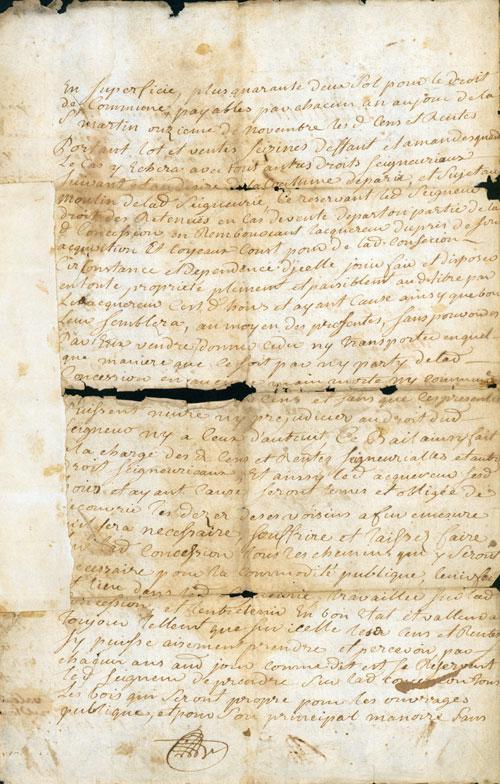 En Superficie, plus quarante deux Sol pour le Droit
de Commune, payables par chacun an au jour de la
St martin onzieme de Novembre les d. Cens et Rentes
Portant lot et ventes Seizines deffaut et amandes quand
Le Cas y Echera avec tout autres droits Seigneuriaux
suivant la Coutume de paris, et Sujet au
moulin de lad. Seigneurie, Ce reservant led. Seigneur
droit des Retenues en Cas de vente de part ou partie de la
d. Concession en Remboursant lacquereur du prix de son
acquisition Et Loyeaux Coust pour de lad. Concession
Circonstance et dependence d'jcelle jouir fair et disposer
en toute propriété plement et paisiblem. audt titre par
Led. acquereur Ces d. hoirs et ayant Cause ainsy que bon
leur Semblera, au moyen des presentes, Sans pouvoir
par Eux vendre donner Ceder ny Transporter en quel
que maniere que Ce Soit par ny party de lad.
Concession en main morte ny Commune
Cens et Sans que Ces presentes
puissent nuire ny prejudicier au droit dud.
Seigneur ny a Ceux d'autruit, Ce Bail ainsy fait
a la charge des d. Cens et Rentes Seigneurialles et autre
droit Seigneuriaux Et aussy led. acquereur Ses d.
hoirs et ayant Cause Seront tenus et obligée de
decouvrir les dezer des es voisins a fur et mesure
quil Sera necessaire, Souffrire et laissez faire
sur lad. Concession tous les chemins qui y Seront
necessaire pour la Commodité publique, tenir feu
et lieu dans lad. travailler sur lad.
Concession, et l'entretenir En bon Etat et valleur
Toujour Tellent que Sur icelle lesd. Cens et Rentes
s'y puisse aisement prendre et percevoir par
chaqun ans aud. jour Comme dit est Se Reservent
led. Seigneur de prendre Sur lad. Concession tous
Les bois qui Seront propre pour les ouvrages
publique, et pour Son principal manoire Sans